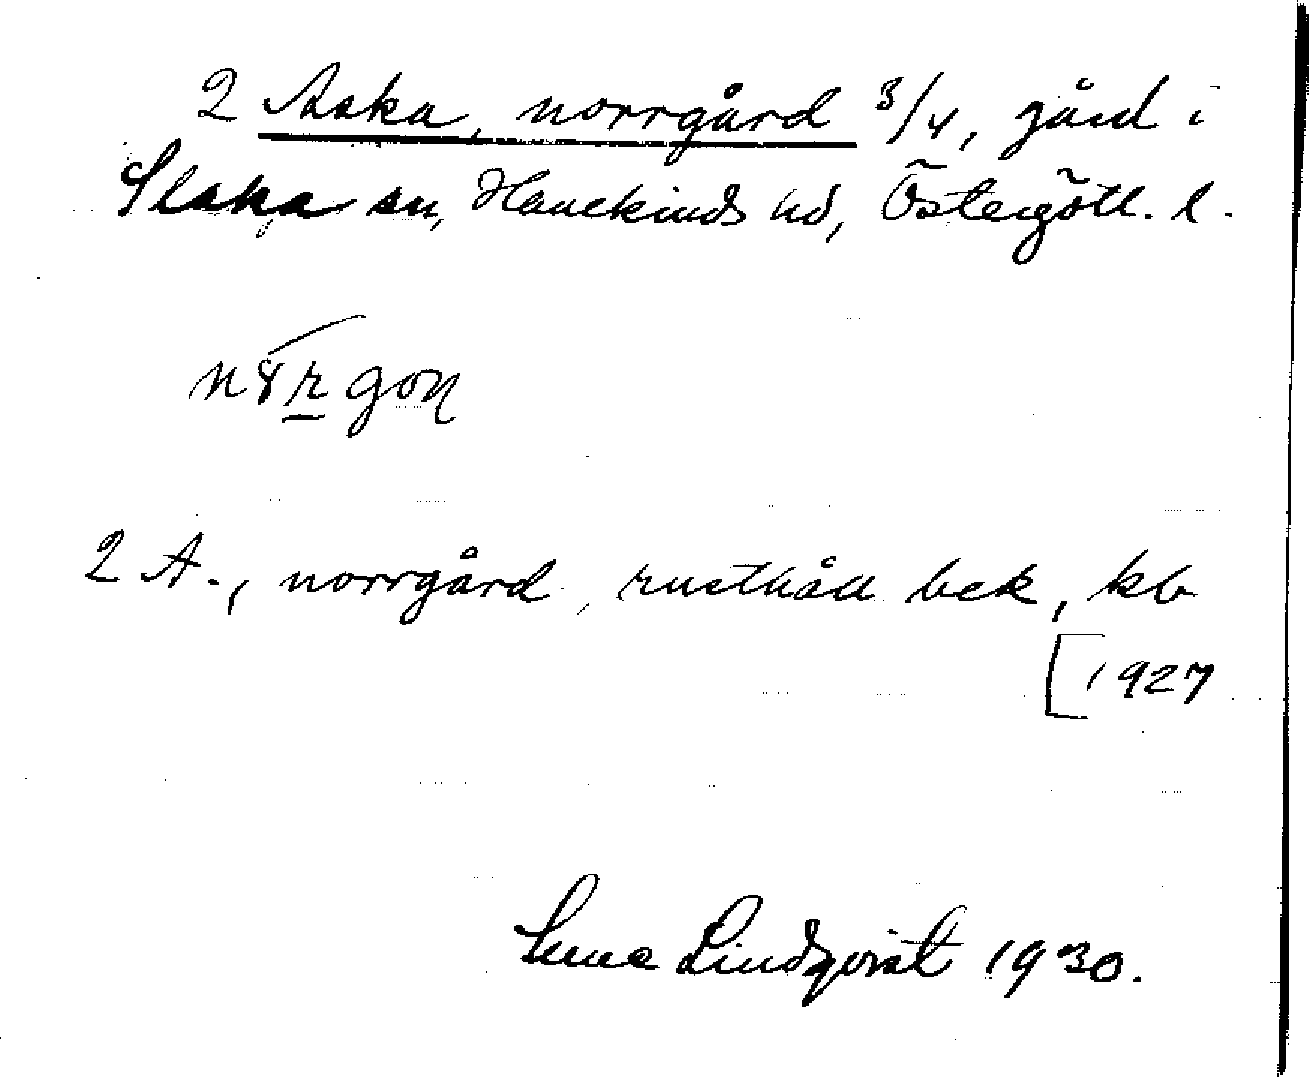 2 Aska, norrgård 3/4, gård i
Slaka sn, Hanekinds hd, Östergötl. l.
2 A., norrgård, rusthåll bek, kb
[1927
Sune Lindqvist 1930.